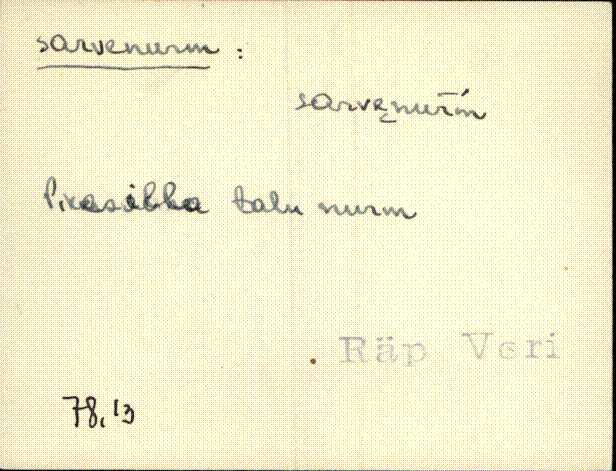 sarvenurm :
sarvę̮nuŕḿ
Pikasilla talu nurm
Räp Veri
78,13